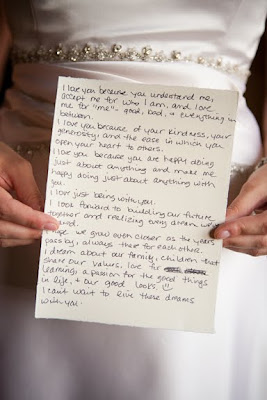 I love you because you understand me,
accept me for who I am, and love
me for "me" - good, bad, + everything in
between.
I love you because of your kindness, your
generosity, and the ease in which you
open your heart to others.
I love you because you are happy doing
just about anything and make me
happy doing just about anything with
you.
I love just being with you.
I look forward to building our future
together and realizing every dream we've
I hope we grow even closer as the years
pass by, always there for each other.
I dream about our family, children that
share our values, love for
learning, a passion for the good things
in life, + our good looks. ☺
I can't wait to live these dreams
with you.